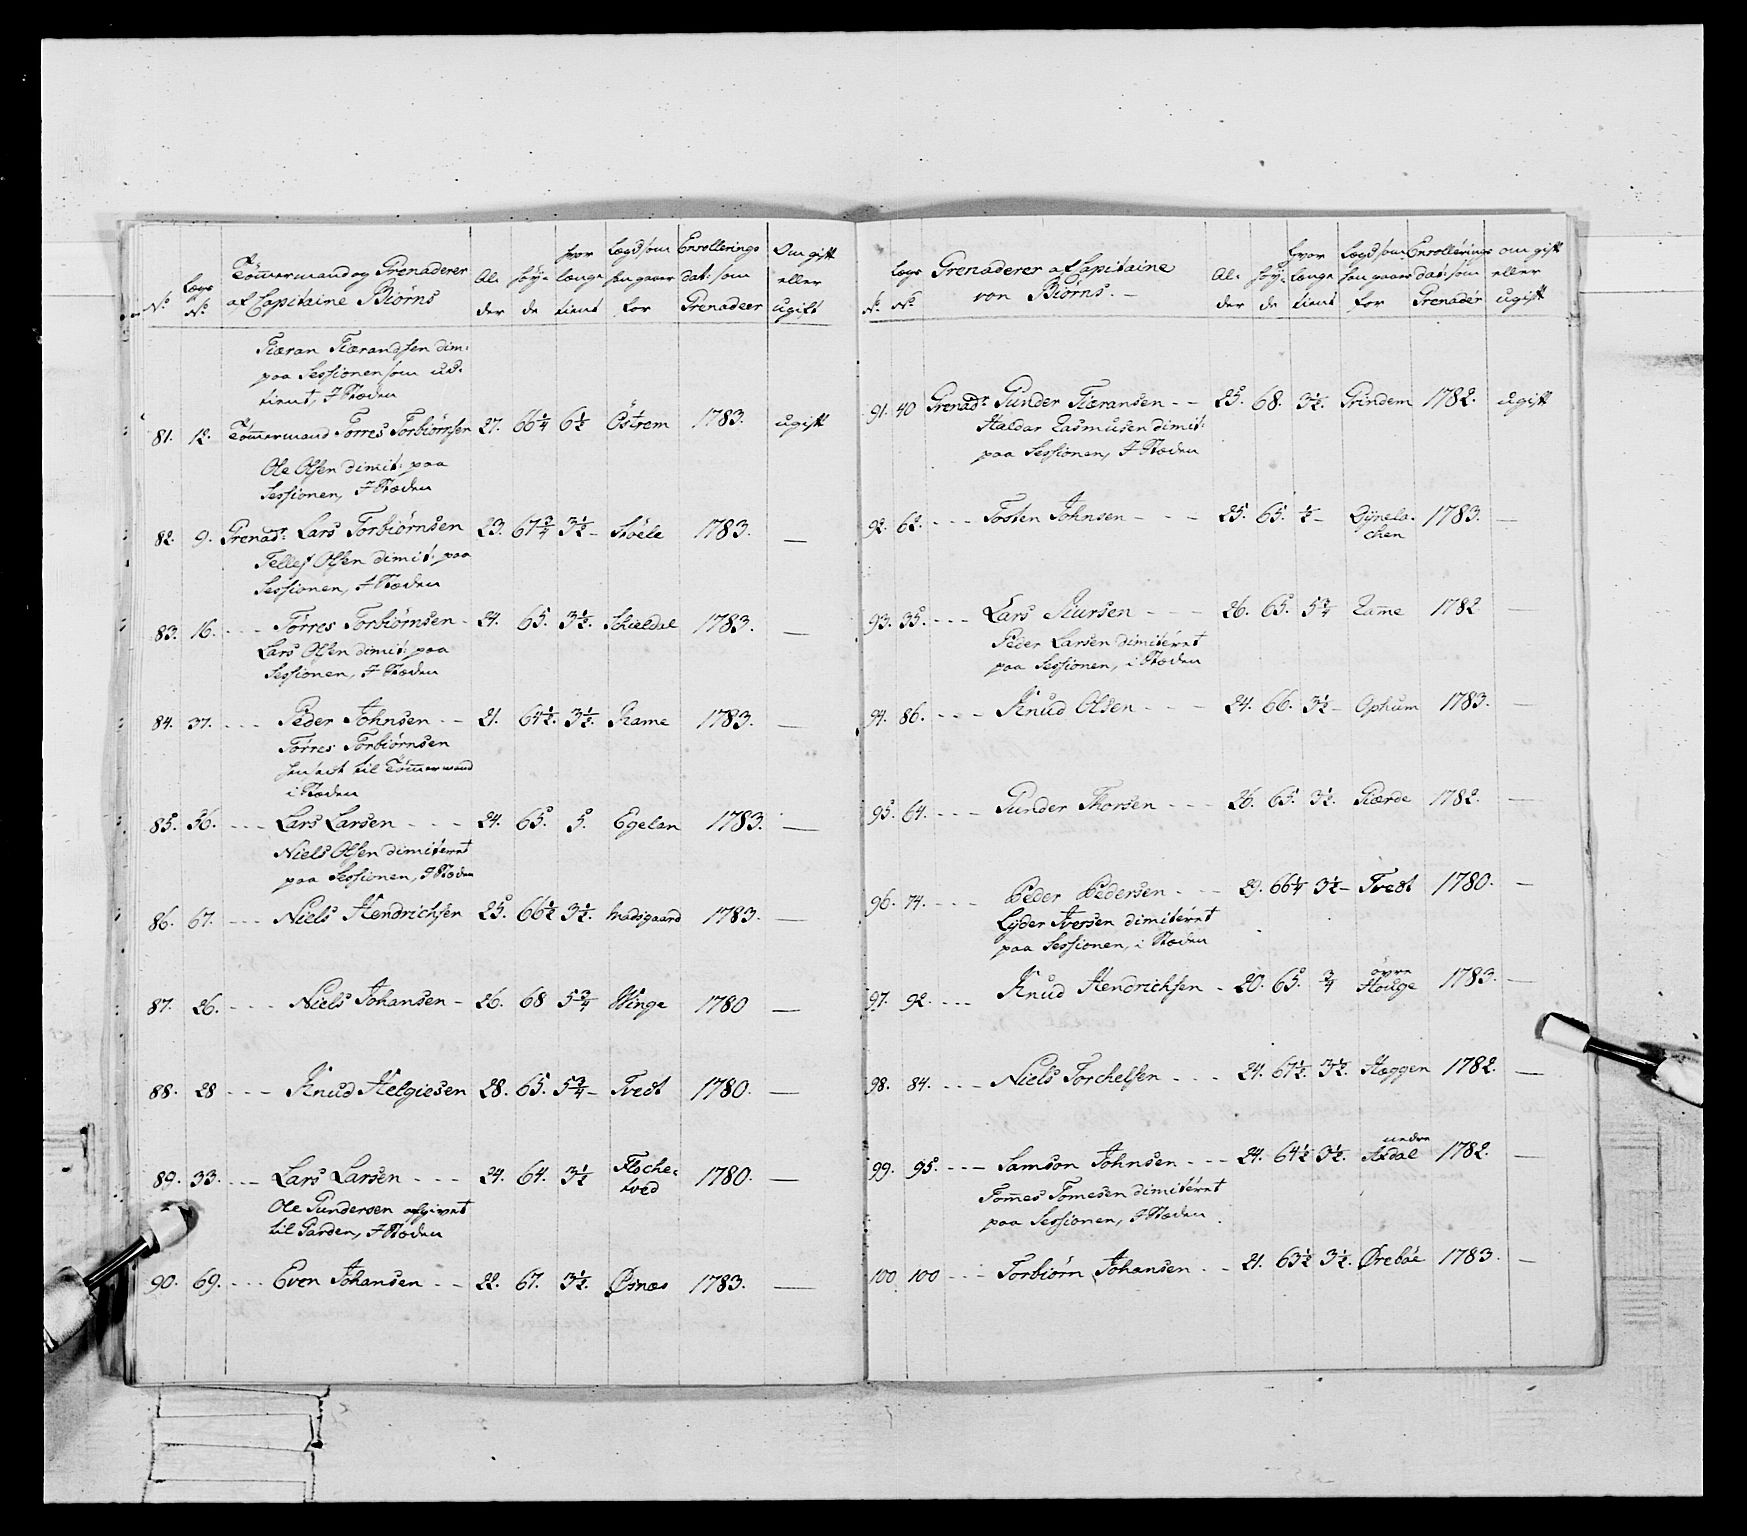 No.
Lægs No.
Tömmermand og Grenaderer
af Capitaine Biörns
Al-
der
höy-
de
hvor
længe
tient
Lægd som
han gaaer
for
Enrollerings
dat: som
Grenadeer
Om gift
eller
ugift
Tiæran Tiærandsen dim:
paa Sessionen som ud-
tient, I Stæden
81. 12. Tömmermand Torres Torbiörnsen 27. 66 1/4 6 1/2 Östrem 1783. ugift
Ole Olsen dimit: paa
Sessionen, I Stæden
82. 9. Grenadr. Lars Torbiörnsen 23. 67 3/4 3 1/2 – Stöele 1783. —
Tellef Olsen dimit: paa
Sessionen, I Stæden
83. 16. - - - Törres Torbiörnsen - 24. 65. 3 1/2. Schieldal 1783. —
Lars Olsen dimit: paa
Sessionen, I Stæden
84. 37. - - - Peder Johnsen - - 21. 64 1/2. 3 1/2. Rame 1783. —
Törres Torbiörnsen
hensadt til Tömmermand
i Stæden
85. 36. - - - Lars Larsen - - - 24. 65. 5. Egelan 1783. —
Niels Olsen dimiteret
paa Sessionen, I Stæden
86. 67. - - - Niels Hendrichsen 25. 66 1/2 3 1/2. Madsgaard 1783. —
87. 26. - - - Niels Johansen - 26. 68 5 3/4 Winge 1780 —
88. 28 - - - Knud Helgiesen 28. 65. 5 3/4 – Tvedt 1780. —
89. 33. - - - Lars Larsen - - - 24. 64. 3 1/2 Floche-
tved 1780. —
Ole Gundersen afgivet
til Garden, I Stæden
90. 69. - - - Even Johansen - - 22. 67. 3 1/2. Øsnæs 1783. —
No.
Lægs No.
Grenaderer af Capitaine
von Biörns. –
Al-
der
höy-
de
hvor
længe
tient
Lægd som
han gaaer
for
Enrollerings
dat: som
Grenadér
om gift
eller
ugift
91. 40 Grenadr. Gunder Tiæransen - - 25. 68. 3 1/2. Grindem 1782. ugift
Haldor Rasmusen dimit:
paa Sessionen, I Stæden
92. 62. - - - Tosten Johnsen - - - 25. 65. 1/2 –
chen 1783. —
93. 35. - - - Lars Siursen - - - 26. 65. 5 3/4 1782
Peder Larsen dimiteret
paa Sessionen, i Stæden
94. 86. - - - Knud Olsen - - - 24. 66. 3 1/2 – Ophum 1783. —
95. 64. - - - Gunder Thorsen - - - 26. 65. 3 1/2. Giærde 1782. —
96. 74. - - - Peder Pedersen - - - 29. 66 1/4 3 1/2 – Tvedt 1780. —
Lyder Iversen dimiteret
paa Sessionen, i Stæden
97. 92. - - - Knud Hendrichsen - 20. 65. 3/4 övre
Houge 1783. —
98. 84. - - - Niels Torchelsen - - - 24. 67 1/2. 3 1/2. Hæggen 1782. —
99. 95. - - - Samson Johnsen - - - 24. 64 1/2 3 1/2. nedre
Axdal 1782. —
Tomes Tomesen dimiteret
paa Sessionen, I Stæden
100 100 - - - Torbiörn Johansen - - 21. 63 1/2 3 1/2. Øreböe 1783. —